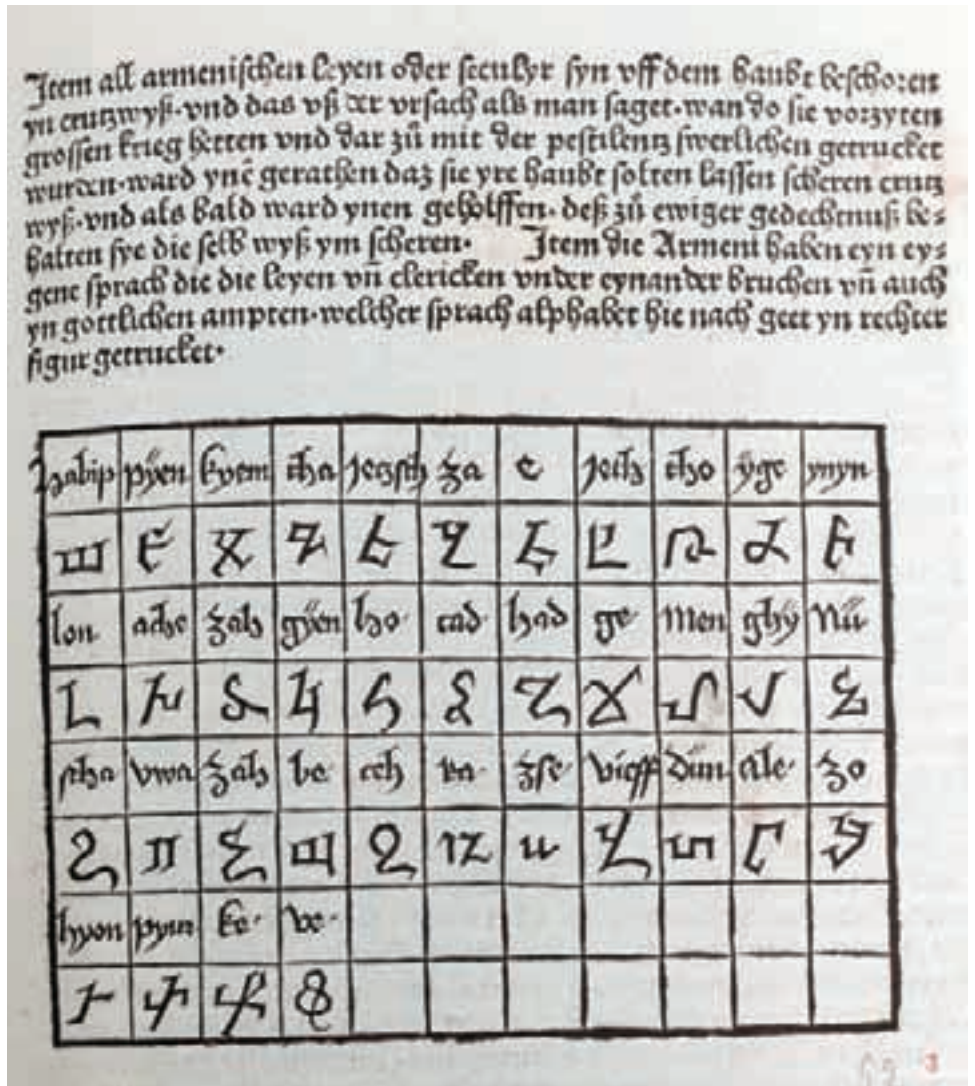 Item all armenischen leyen oder seculyr syn vff dem haubt beschoren
yn crutzwyß·vnd das vß der vrsach als man saget·wan do sie vorzyten
grossen krieg hetten vnd dar zů mit der pestilentz swerlichen getrucket
wurden·ward ynē gerathen daz sie yre haubt solten lassen scheren crutz
wyß·vnd als bald ward ynen geholffen·deß zů ewiger gedechtnuß be⸗
halten sye die selb wyß ym scheren· Item die Armeni haben eyn ey⸗
gene sprach die die leyen vñ clericken vnder eynander bruchen vñ auch
yn gottlichen ampten·welcher sprach alphabet hie nach geet yn rechter
figur getrucket·
pÿen kyem tha za e jech tho ÿge ynyn
Ա Բ Գ Դ Ե Զ Է Ը Թ Ժ Ի
lon ache zah gÿen ho· tad· had ge· Men ghÿ Nü
Լ Խ Ծ Կ Հ Ձ Ղ Ճ Մ Յ Ն
scha vwa zah be· ceh ra· zse· vieff dün ale· zo
Շ Ո Չ Պ Ջ Ռ Ս Վ Տ Ր Ց
hyon pyur ke· ve·
Ւ Փ Ք Ֆ